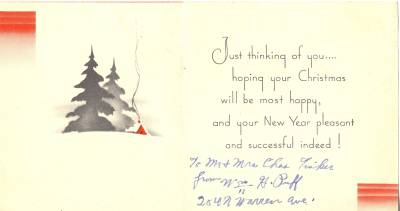 Just thinking of you....
hoping your Christmas
will be most happy,
and your New Year pleasant
and successful indeed!
To Mr & Mrs Chas
from Wm H.
Warren Ave.